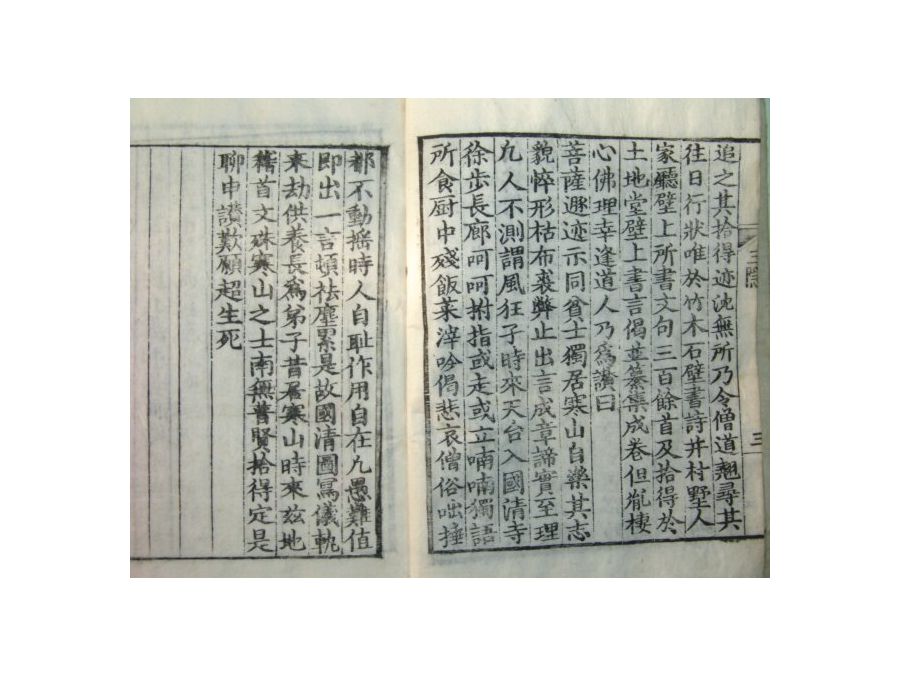 追之其拾得迹沈無所乃令僧道翹尋其
往日行狀唯於竹木石壁書詩并村墅人
家廳壁上所書文句三百餘首及拾得於
土地堂壁上書言偈並纂集成卷但胤棲
心佛理幸逢道人乃爲讃曰
菩薩遯迹示同貧士獨居寒山自樂其志
貌悴形枯布裘弊止出言成章諦實至理
凢人不測謂風狂子時來天台入國清寺
徐步長廊呵呵拊指或走或立喃喃獨語
所食厨中殘飯菜滓吟偈悲哀僧俗咄捶
三隱
三
都不動搖時人自耻作用自在凢愚難值
即出一言頓祛塵累是故國清圖冩儀軌
來劫供養長爲弟子昔居寒山時來玆地
稽首文殊寒山之士南無普賢拾得定是
聊申讃歎願超生死